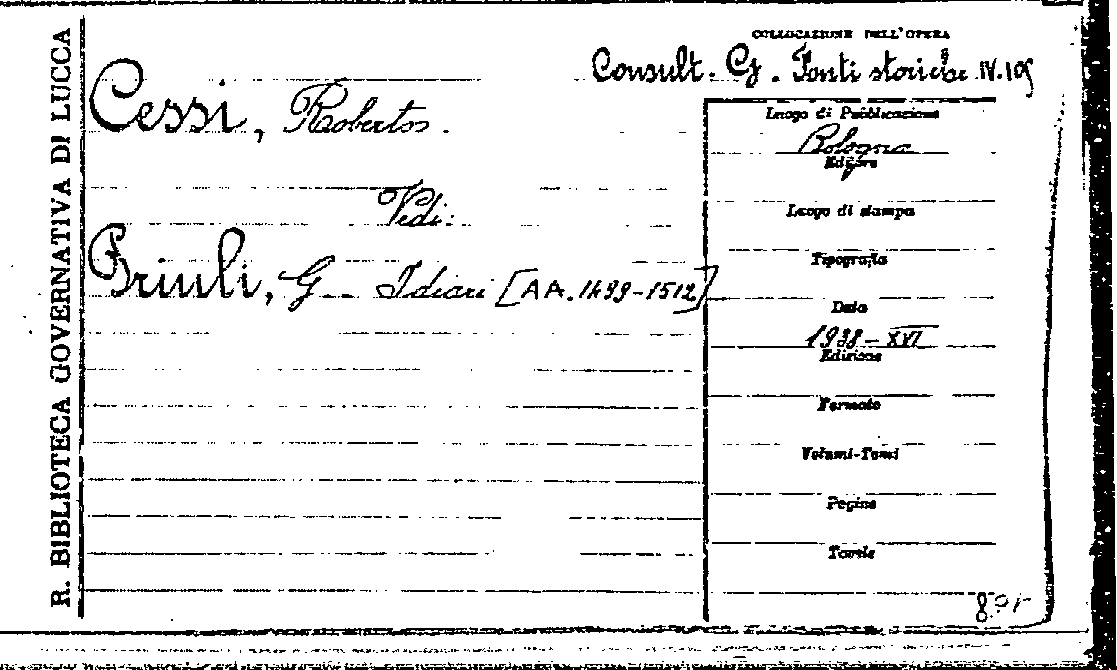 R. BIBLIOTECA GOVERNATIVA DI LUCCA
COLLOCAZIONE DELL'OPERA
Consult. G. Fonti storiche IV.19
Cessi, Roberto.
Vedi:
Priuli, G - I diari [AA. 1499-1512]
Luogo di Pubblicazione
Bologna
Editore
Luogo di stampa
Tipografia
Data
1938-XVI
Edizione
Formato
Volumi-Tomi
Pagine
Tavole